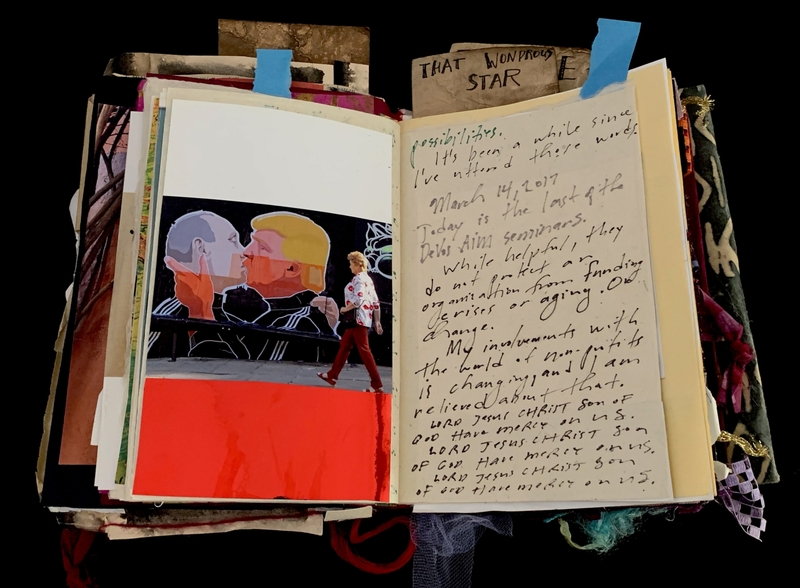 THAT WONDROUS
STAR
E
possibilities.
It's been a while since
I've uttered these words
March 14, 2017
Today is the last of the
DeVos Aim seminars.
While helpful, they
do not protect an
organization from funding
crises or aging. Or
change.
My involvements with
the world of non-profits
is changing and I am
relieved about that.
LORD JESUS CHRIST Son OF
GOD Have mercy on us.
LORD JESUS CHRIST Son
OF GOD Have mercy on us.
LORD JESUS CHRIST Son
OF GOD Have mercy on us.